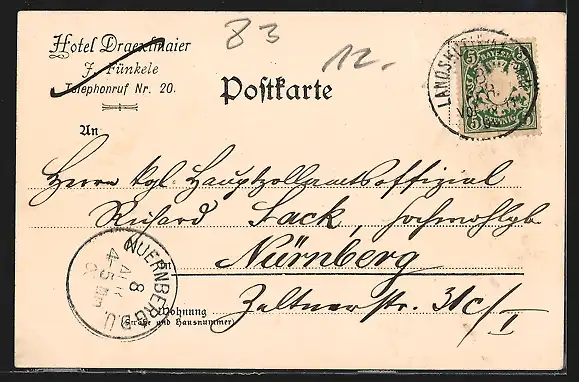 83
12.
Hotel Draexlmaier
J. Fünkele
Telephonruf Nr. 20.
Postkarte
LANDSHUT
BAYERN
5 5
PFENNIG
5 5
An
Herrn kgl. Hauptzollamtsoffizial
Richard Lack, Hochwohlgb.
in Nürnberg
Zeltnerstr. 31c/I
Wohnung
(Straße und Hausnummer)
NUERNBERG
8
4-5